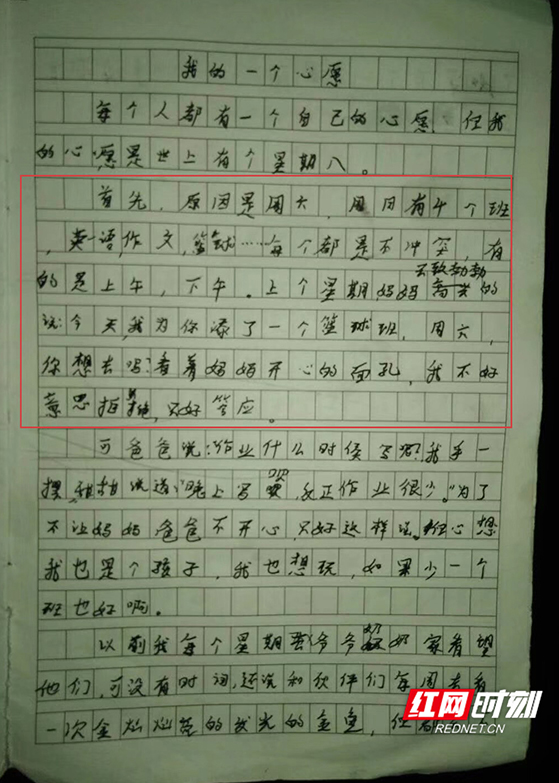 我的一个心愿
每个人都有一个自己的心愿,但我
的心愿是世上有个星期八。
首先,原因是周六,周日有4个班
,英语,作文,篮球……每个都是不冲突,有
的是上午,下午。上个星期妈妈高兴的
说:今天,我为你添了一个篮球班,周六,
你想去吗?看着妈妈开心的面孔,我不好
意思拒绝,只好答应。
可爸爸说:作业什么时候写啊?我手一
摆,说道:晚上写呗,反正作业很少。"为了
不让妈妈爸爸不开心,只好这样说。心想
我也是个孩子,我也想玩,如果少一个
班也好啊。
以前我每个星期去爷爷奶奶家看望
他们,可没有时间,还说和伙伴们每周去看
一次金灿灿的发光的金鱼,但
红网时刻
REDNET.CN